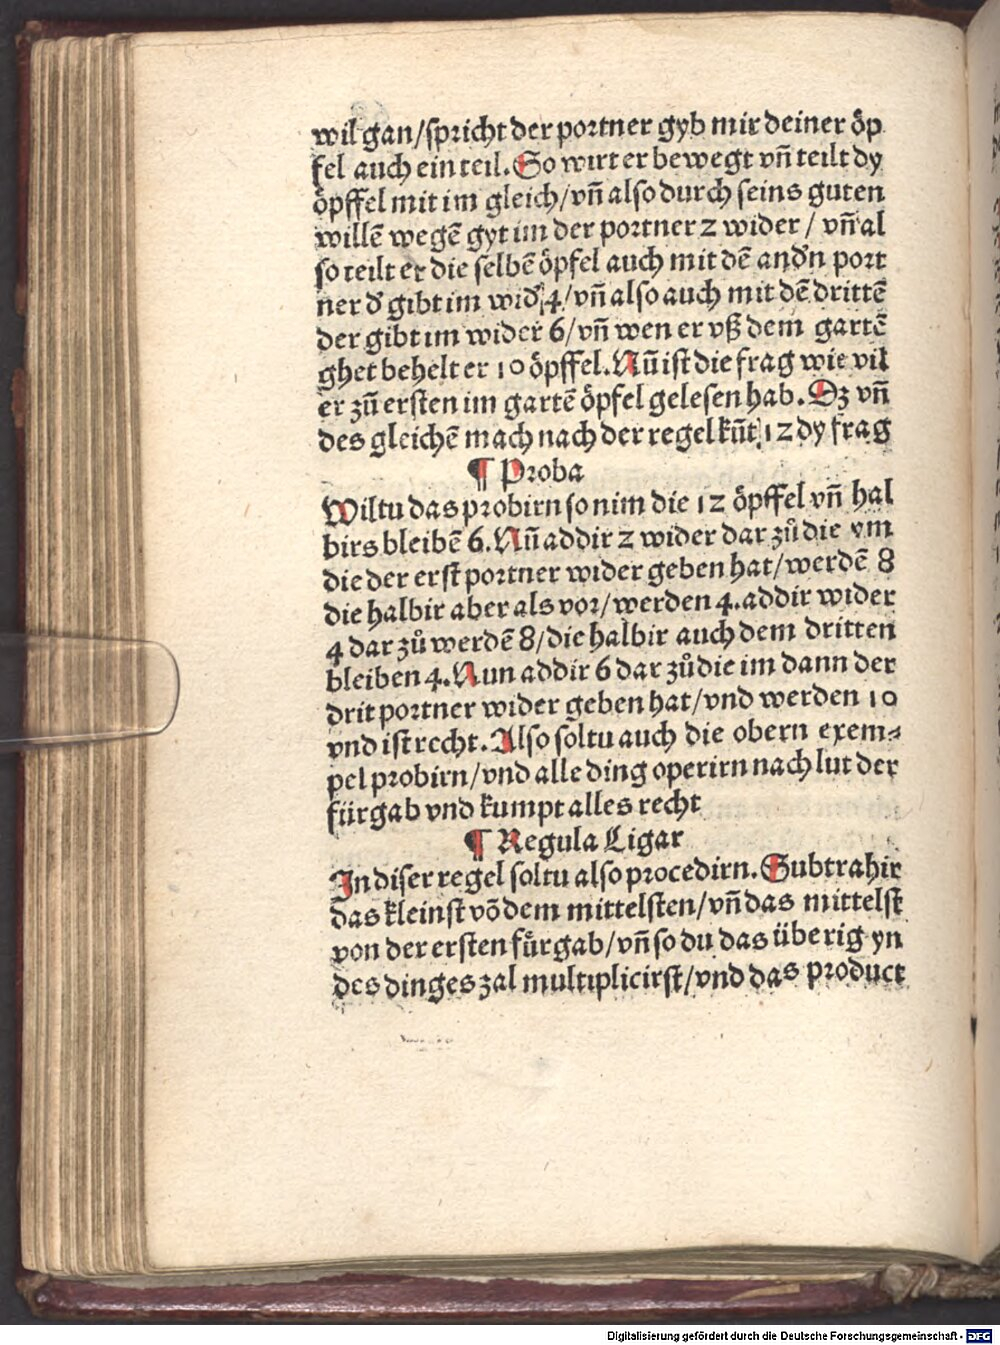 wil gan/spricht der portner gyb mir deiner öp
fel auch ein teil. So wirt er bewegt vñ teilt dy
öpffel mit im gleich/vñ also durch seins guten
willē wegē gyt im der portner 2 wider / vñ al
so teilt er die selbē öpfel auch mit dē andˀn port
ner dˀ gibt im widˀ 4/vñ also auch mit dē drittē
der gibt im wider 6/vñ wen er vß dem gartē
ghet behelt er 10 öpffel. Nū ist die frag wie vil
er zū ersten im gartē öpfel gelesen hab. Dz vñ
des gleichē mach nach der regel kūt 12 dy frag
¶ Proba
Wiltu das probirn so nim die 12 öpffel vñ hal
birs bleibē 6. Nū addir 2 wider dar zů die vm
die der erst portner wider geben hat/werdē 8
die halbir aber als vor/werden 4. addir wider
4 dar zů werdē 8/die halbir auch dem dritten
bleiben 4. Nun addir 6 dar zů die im dann der
drit portner wider geben hat/vnd werden 10
vnd ist recht. Also soltu auch die obern exem⸗
pel probirn/vnd alle ding operirn nach lut der
fürgab vnd kumpt alles recht
¶ Regula Ligar
In diser regel soltu also procedirn. Subtrahir
das kleinst vō dem mittelsten/vñ das mittelst
von der ersten fürgab/vñ so du das überig yn
des dinges zal multiplicirst/vnd das product
Digitalisierung gefördert durch die Deutsche Forschungsgemeinschaft - DFG